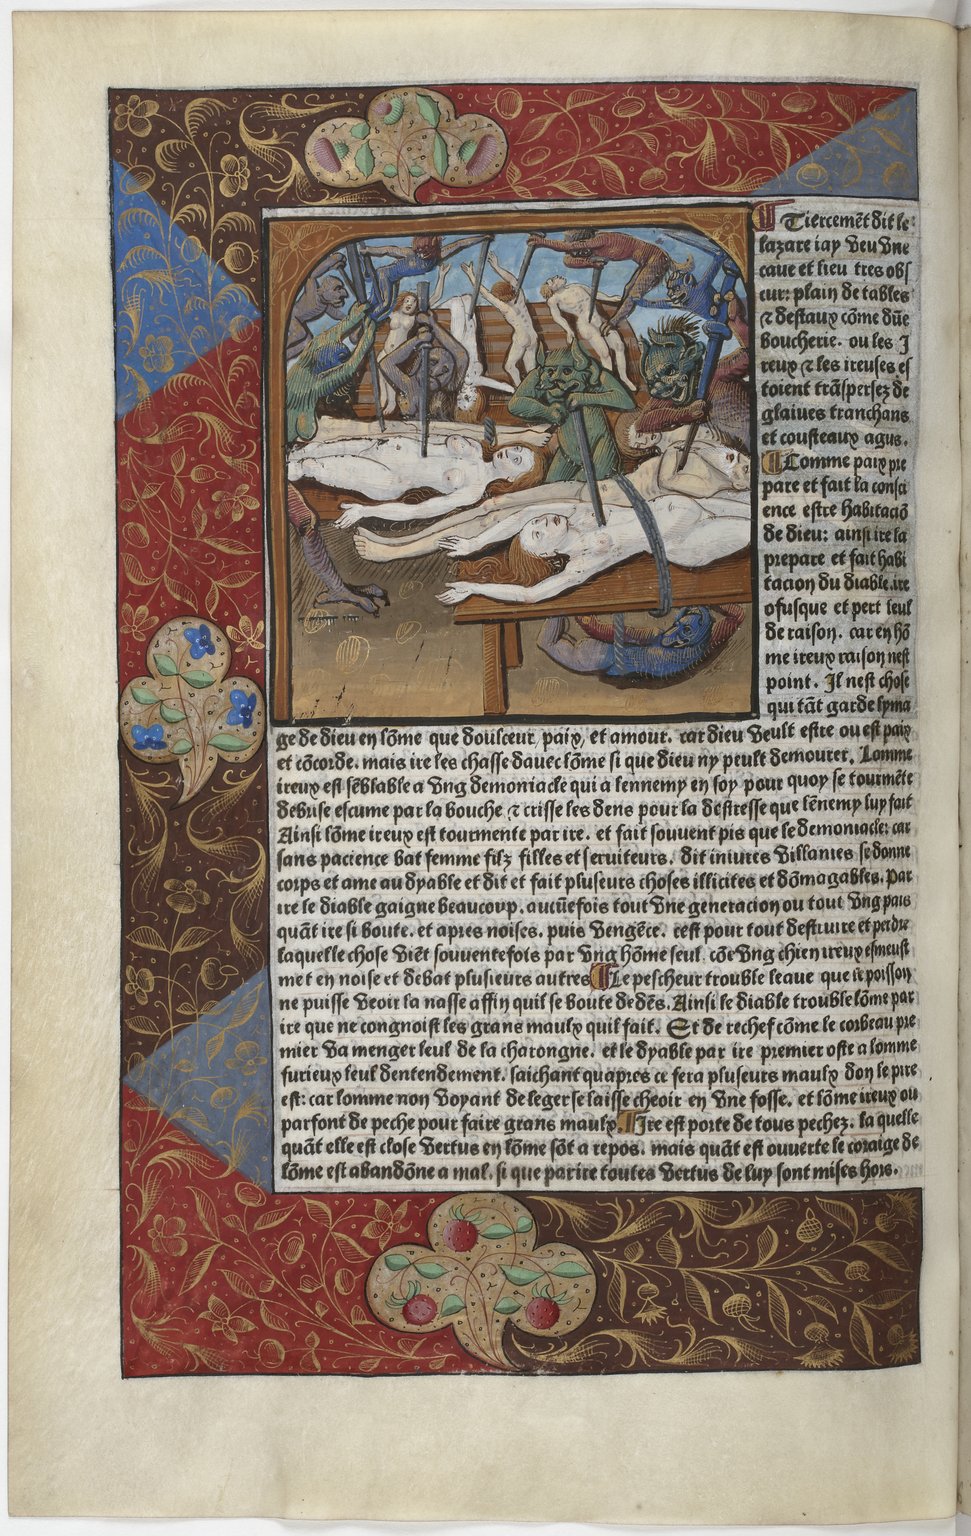 Tiercemẽt dit le
lazare iay veu vne
caue et lieu tres obs
cur: plain de tables
⁊ destaux cõme dũe
boucherie. ou les I
reux ⁊ les ireuses es
toient trãspersez de
glaiues tranchans
et cousteaux agus.
Comme paix pre
pare et fait la consci
ence estre habitaciõ
de dieu: ainsi ire la
prepare et fait habi
tacion du diable. ire
ofusque et pert leul
de raison. car en hõ
me ireux raison nest
point. Il nest chose
qui tãt garde lyma
ge de dieu en lõme que doulceur, paix, et amour. car dieu veult estre ou est paix
et cõcorde. mais ire les chasse dauec lõme si que dieu ny peult demourer. Lomme
ireux est sẽblable a vng demoniacle qui a lennemy en soy pour quoy se tourmẽte
debrise escume par la bouche ⁊ crisse les dens pour la destresse que lẽnemy luy fait
Ainsi lõme ireux est tourmente par ire. et fait souuent pis que le demoniacle: car
sans pacience bat femme filz filles et seruiteurs. dit iniures villanies se donne
corps et ame au dyable et dit et fait pluseurs choses illicites et dõmagables. Par
ire le diable gaigne beaucoup. aucũefois tout vne generacion ou tout vng pais
quãt ire si boute. et apres noises. puis vengẽce. cest pour tout destruire et perdre
laquelle chose viẽt souuentefois par vng hõme seul. cõe vng chien ireux esmeust
met en noise et debat plusieurs autres Le pescheur trouble leaue que le poisson
ne puisse veoir la nasse affin quil se boute dedẽs. Ainsi le diable trouble lõme par
ire que ne congnoist les grans maulx quil fait. Et de rechef cõme le corbeau pre
mier va menger leul de la charongne. et le dyable par ire premier oste a lomme
furieux leul dentendement. saichant quapres ce fera pluseurs maulx don le pire
est: car lomme non voyant de leger se laisse cheoir en vne fosse. et lõme ireux ou
parfont de peche pour faire grans maulx. Ire est porte de tous pechez. la quelle
quãt elle est close vertus en lõme sõt a repos. mais quãt est ouuerte le coraige de
lõme est abandõne a mal. si que par ire toutes vertus de luy sont mises hors.